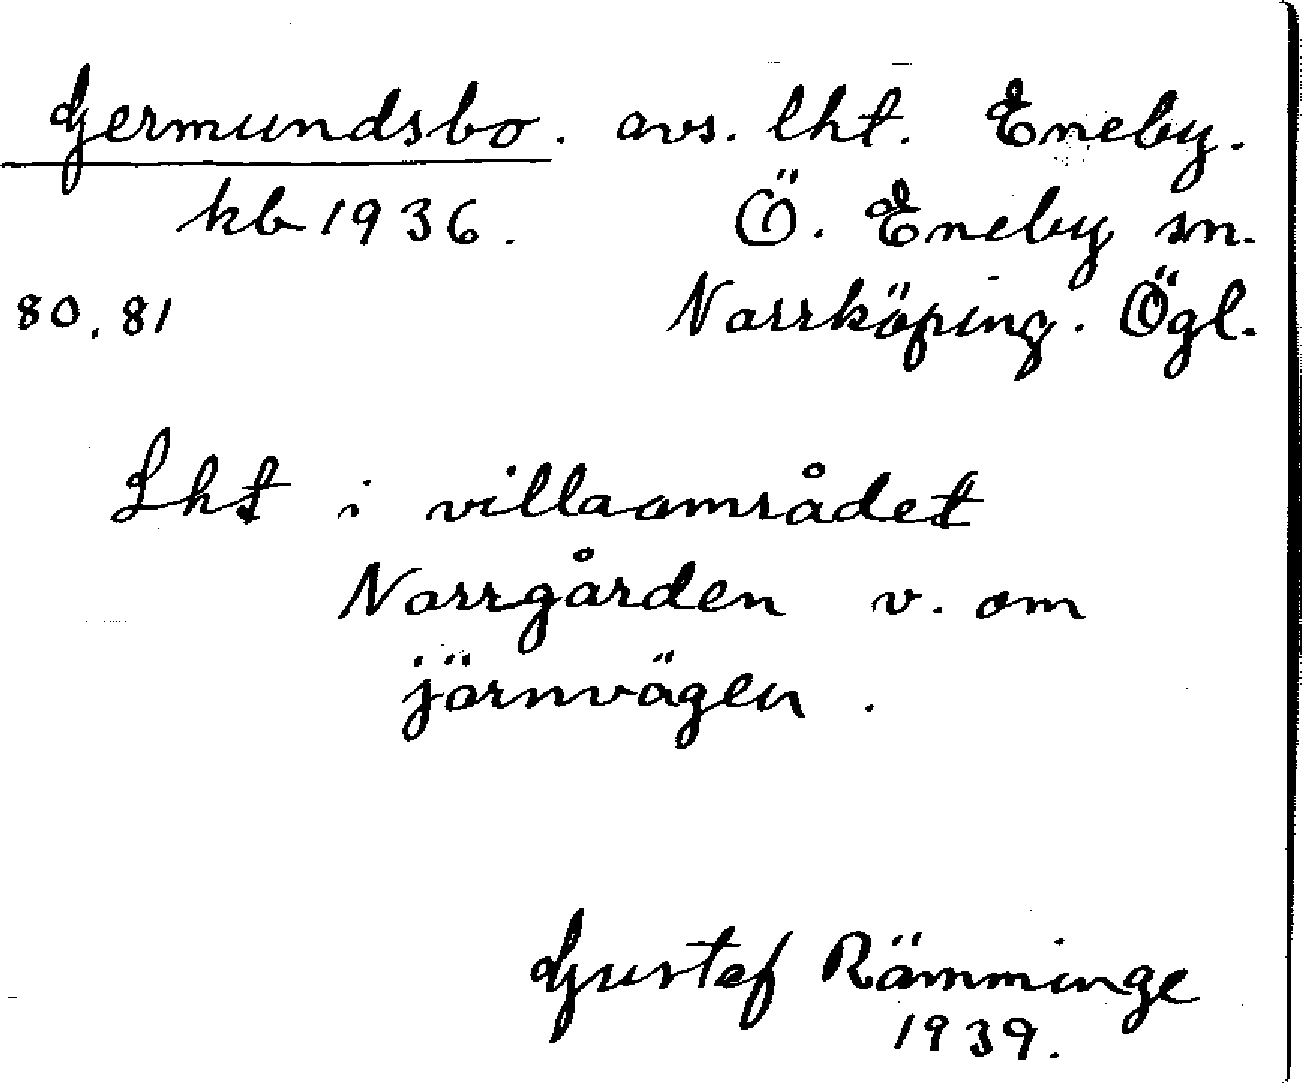 Germundsbo. avs. lht. Eneby.
kb 1936. Ö. Eneby sn.
80, 81 Norrköping. Ögl.
Lht i villaområdet
Norrgården v. om
järnvägen.
Gustef Rämminge
1939.